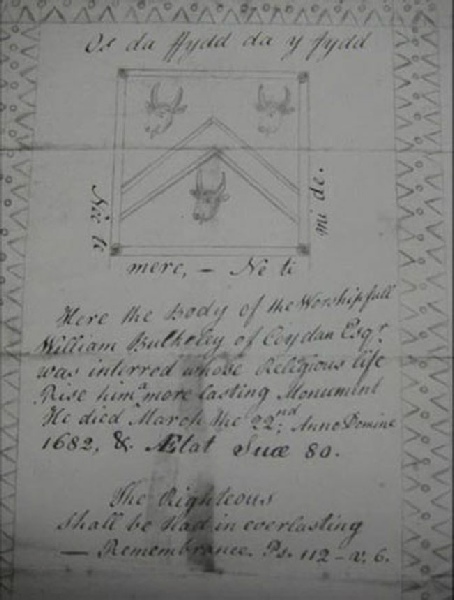 Os da ffydd da y fydd
Ne ti
mi de.
merc, — Ne ti
Here the Body of the Worshipfull
William Bulkeley of Coydan Esqr.
was interred whose Religious life
Rise him a more lasting Monument
He died March the 22nd. Anno Domine
1682, & Ætat Suæ 80.
The Righteous
shall be had in everlasting
— Remembrance. Ps. 112 – v. 6.